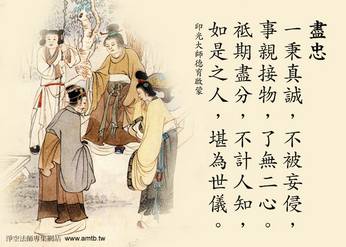 盡忠
印光大師德育啟蒙
一秉真誠，不被妄侵，
事親接物，了無二心。
祗期盡分，不計人知，
如是之人，堪為世儀。
淨空法師專集網站 www.amtb.tw